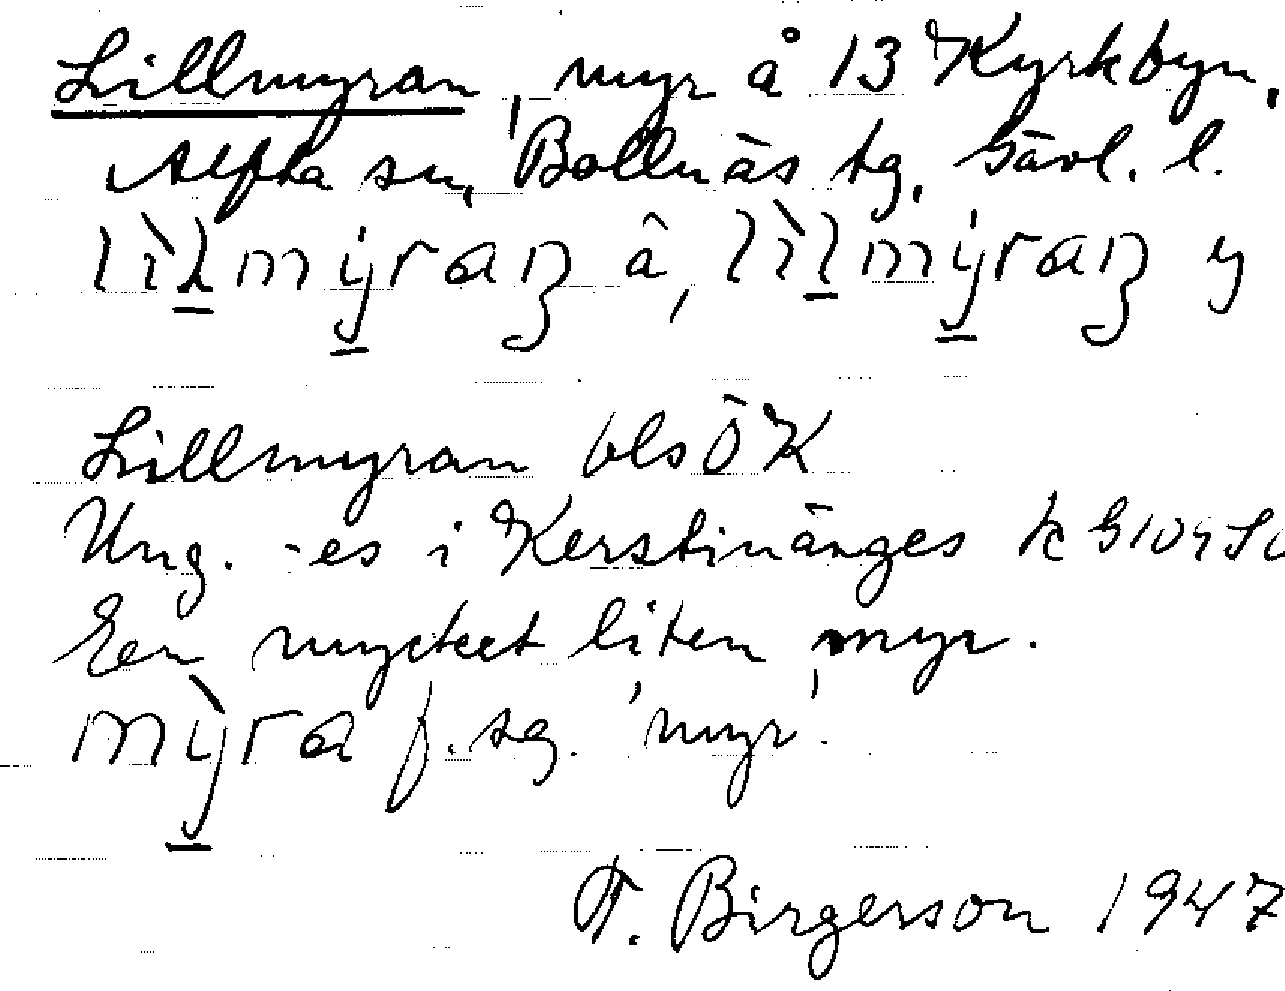 Lillmyran, myr å 13 Kyrkbyn,
Alfta sn, Bollnäs tg, Gävl. l.
lìlmýraɲ â, lìlmýraɲ y
Lillmyran bls ÖK
Ung. -es i Kerstinänges k
Een mycket liten myr.
mỳra f. sg. 'myr'.
F. Birgerson 1947